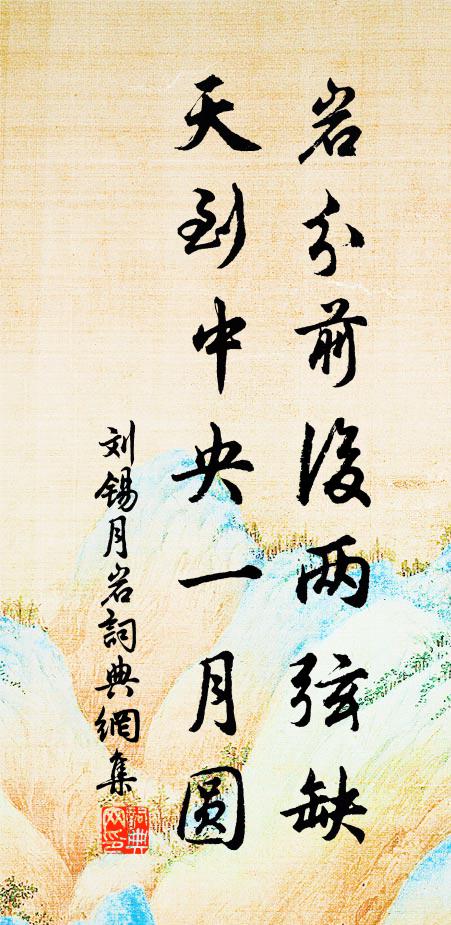 岩分前後两弦缺
天到中央一月圓
刘锡月岩詞典網集
詞典网印